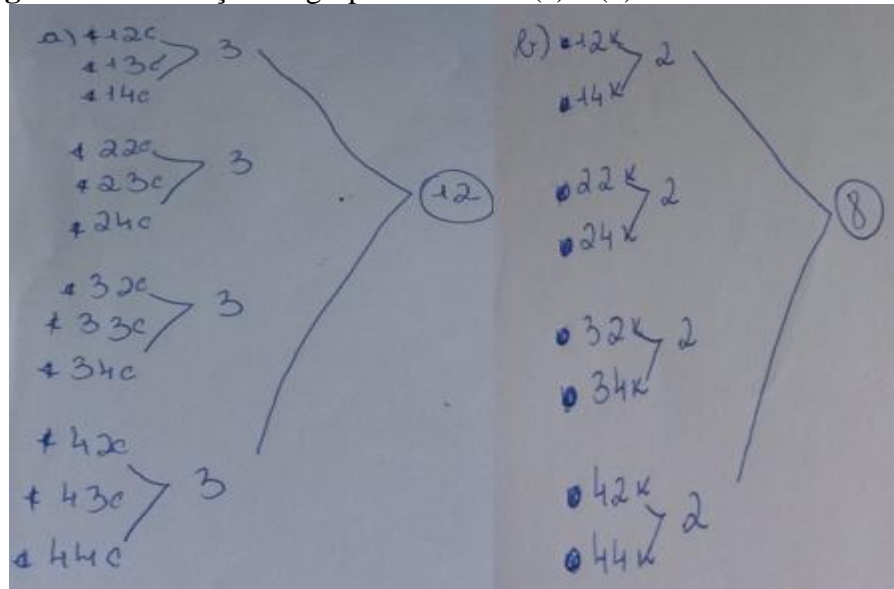 a) • 12c
• 13c 3
• 14c
• 22c
• 23c 3
• 24c
• 32c
• 33c 3
• 34c
• 42c
• 43c 3
• 44c
12
b) • 12k
• 14k 2
• 22k
• 24k 2
• 32k
• 34k 2
• 42k
• 44k 2
8